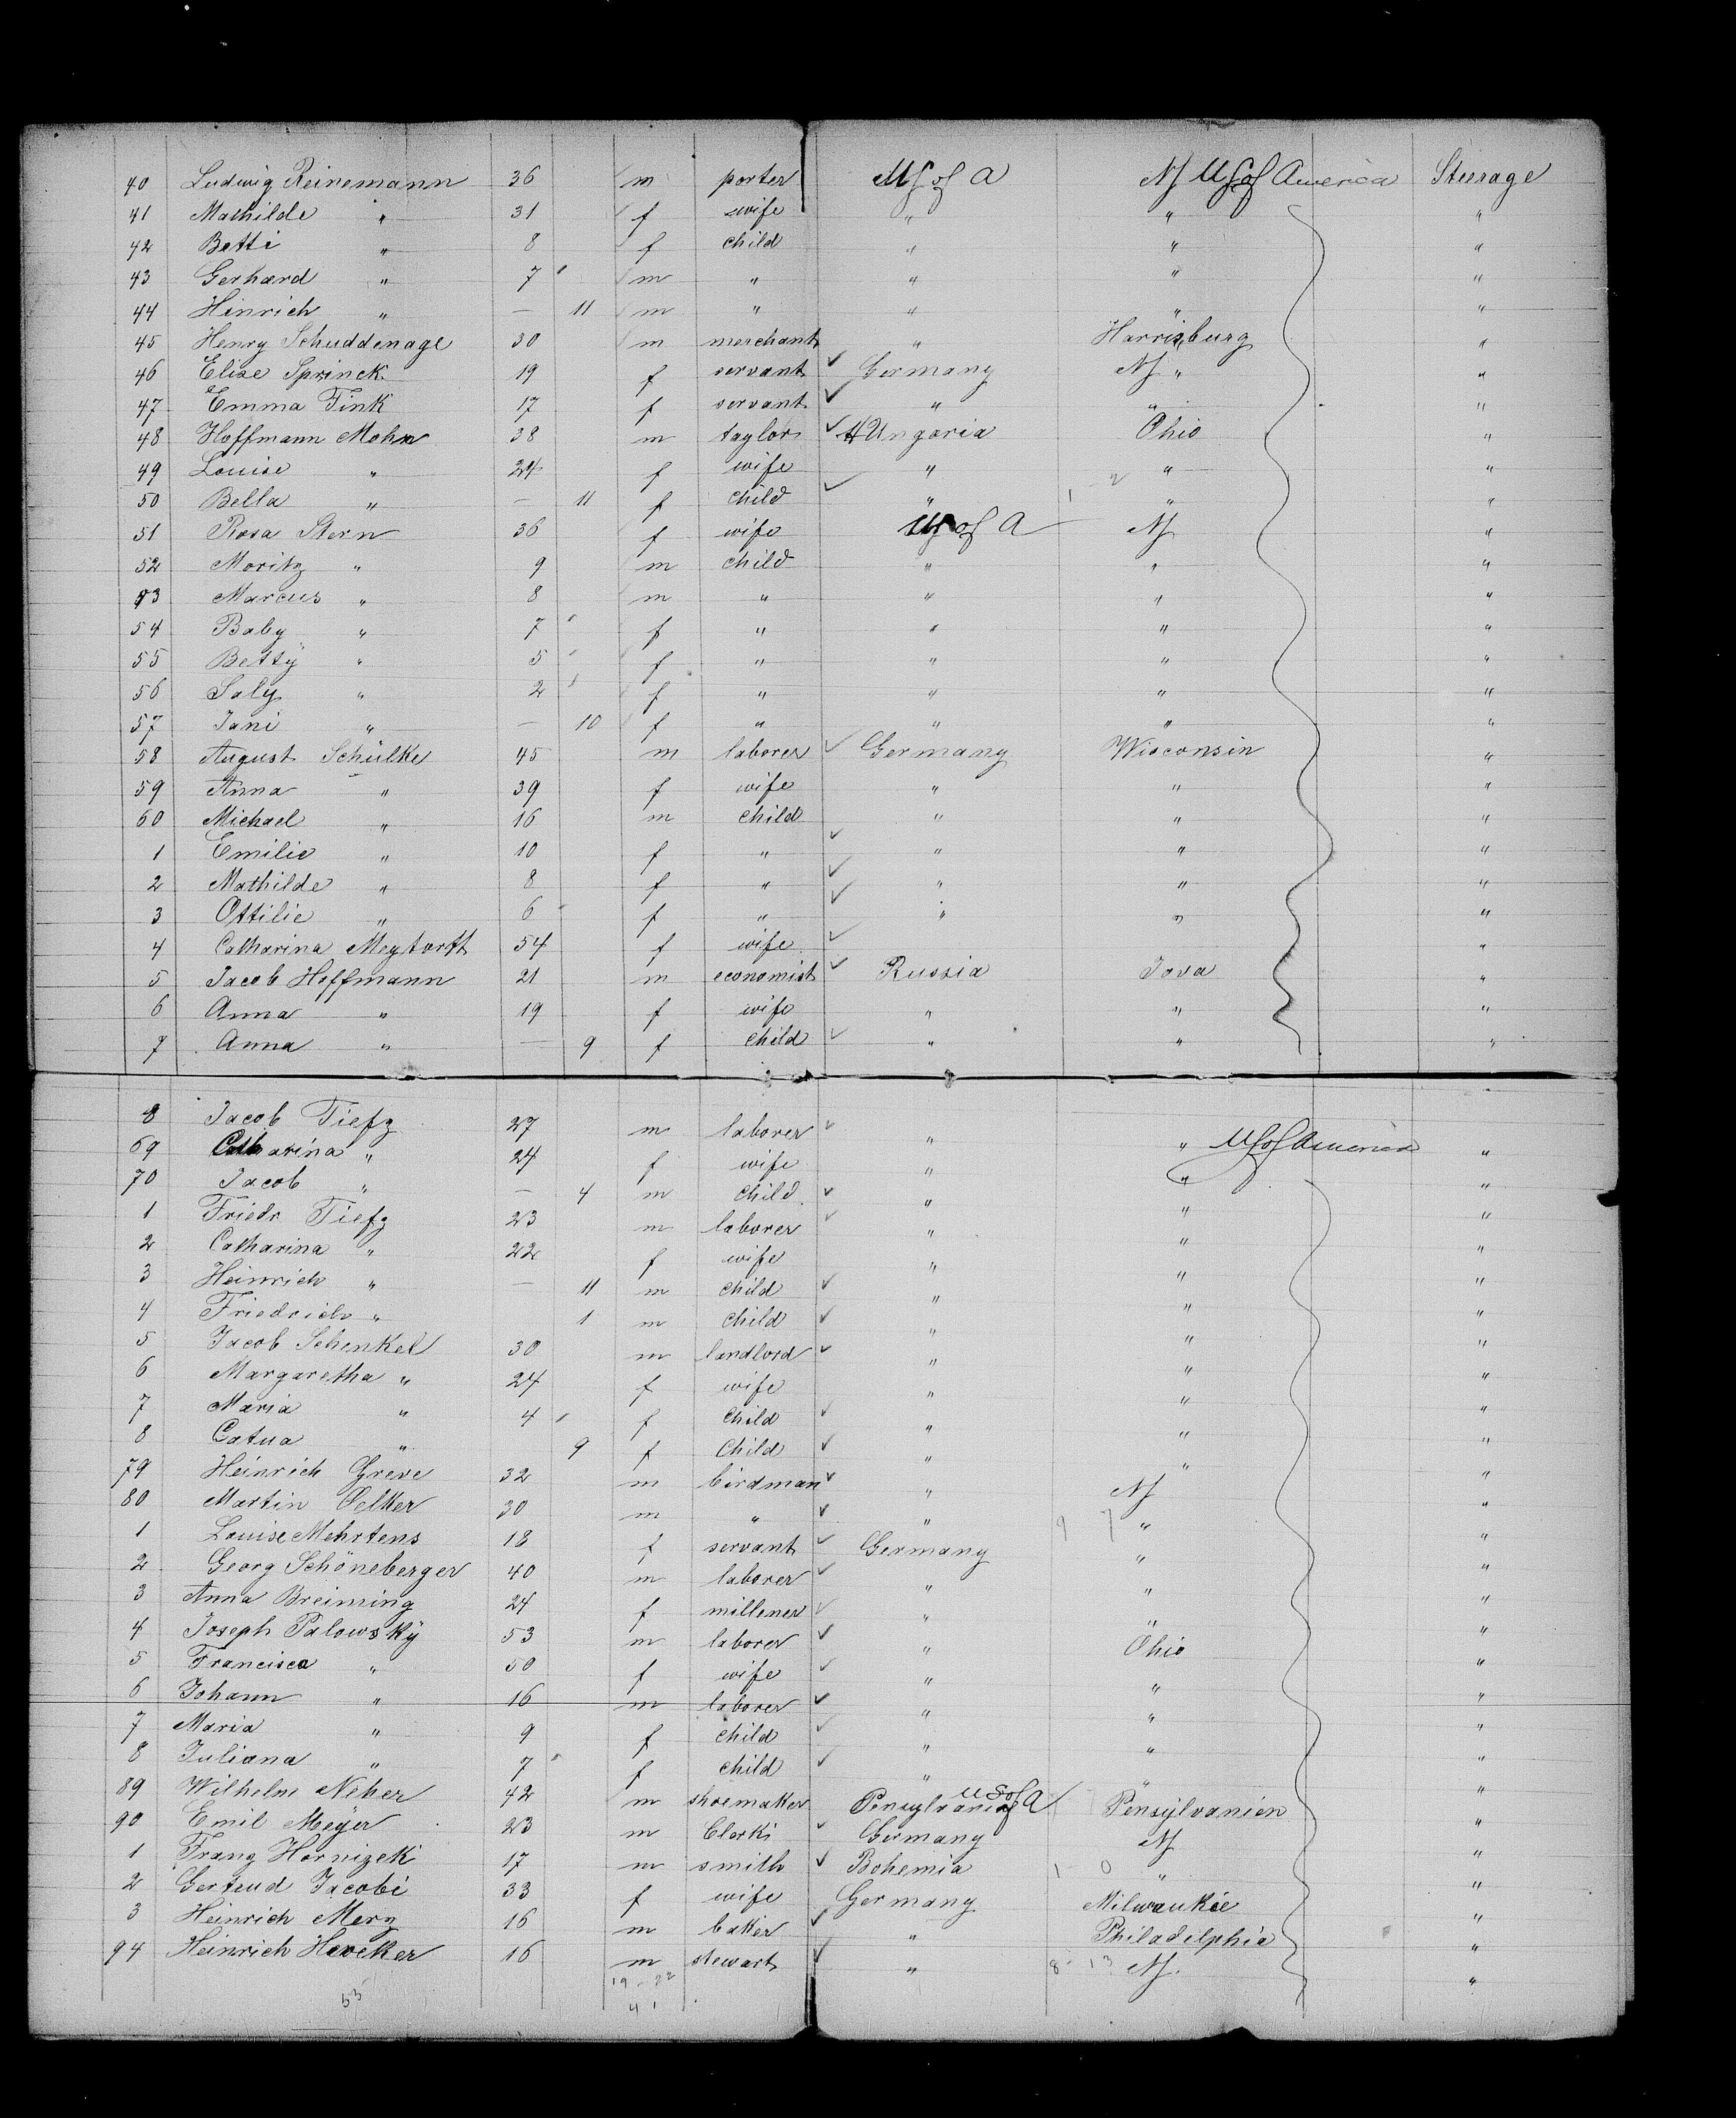 40 Ludwig Reinemann 36 m porter US of A NY US of America Steerage
41 Mathilde " 31 f wife " " "
42 Betti " 8 f child " " "
43 Gerhard " 7 m " " " "
44 Hinrich " — 11 m " " " "
45 Henry Schuddenage 30 m merchant " Harrisburg "
46 Elise Sprinck 19 f servant Germany NY " "
47 Emma Fink 17 f servant " " "
48 Hoffmann Mohn 38 m taylor Hungaria Ohio "
49 Louise " 24 f wife " " "
50 Bella " — 11 f child " 1 2 " "
51 Rosa Stern 36 f wife US of A NY "
52 Moritz " 9 m child " " "
53 Marcus " 8 m " " " "
54 Baby " 7 f " " " "
55 Bettÿ " 5 f " " " "
56 Saly " 2 f " " " "
57 Jani " — 10 f " " " "
58 August Schülke 45 m laborer Germany Wisconsin "
59 Anna " 39 f wife " " "
60 Michael " 16 m child " " "
1 Emilie " 10 f " " " "
2 Mathilde " 8 f " " " "
3 Ottilie " 6 f " " " "
4 Catharina 54 f wife "
5 Jacob Hoffmann 21 m economist Russia Iova "
6 Anna " 19 f wife " " "
7 Anna " — 9 f child " " "
8 Jacob Tiefz 27 m laborer " " US of America "
69 Catharina " 24 f wife " " "
70 Jacob " — 4 m child " " "
1 Friedr Tiefz 23 m laborer " " "
2 Catharina " 22 f wife " " "
3 Heinrich " — 11 m child " " "
4 Friedrich " 1 m child " " "
5 Jacob Schenkel 30 m landlord " " "
6 Margaretha " 24 f wife " " "
7 Maria " 4 f child " " "
8 Catua " 9 f child " " "
79 Heinrich Greve 32 m birdman " NY "
80 Martin Oelker 30 m " " 9 7 " "
1 Louise Mehrtens 18 f servant Germany " "
2 Georg Schöneberger 40 m laborer " " "
3 Anna Breiming 24 f millener " " "
4 Joseph Palowskÿ 53 m laborer " Ohio "
5 Francisca " 50 f wife " " "
6 Johann " 16 m laborer " " "
7 Maria " 9 f child " " "
8 Juliana " 7 f child " " "
89 Wilhelm Neher 42 m shoemaker Pensylvanien US of A Pensÿlvanien "
90 Emil Meÿer 23 m Clerk Germany NY "
1 Franz Hornizek 17 m smith Bohemia 1 0 " "
2 Gertrud Jacobi 33 f wife Germany Milwaukie "
3 Heinrich Merz 16 m baker " Philadelphia "
94 Heinrich Hoecker 16 m stewart " 8 - 13 NY. "
53 19 - 22
41